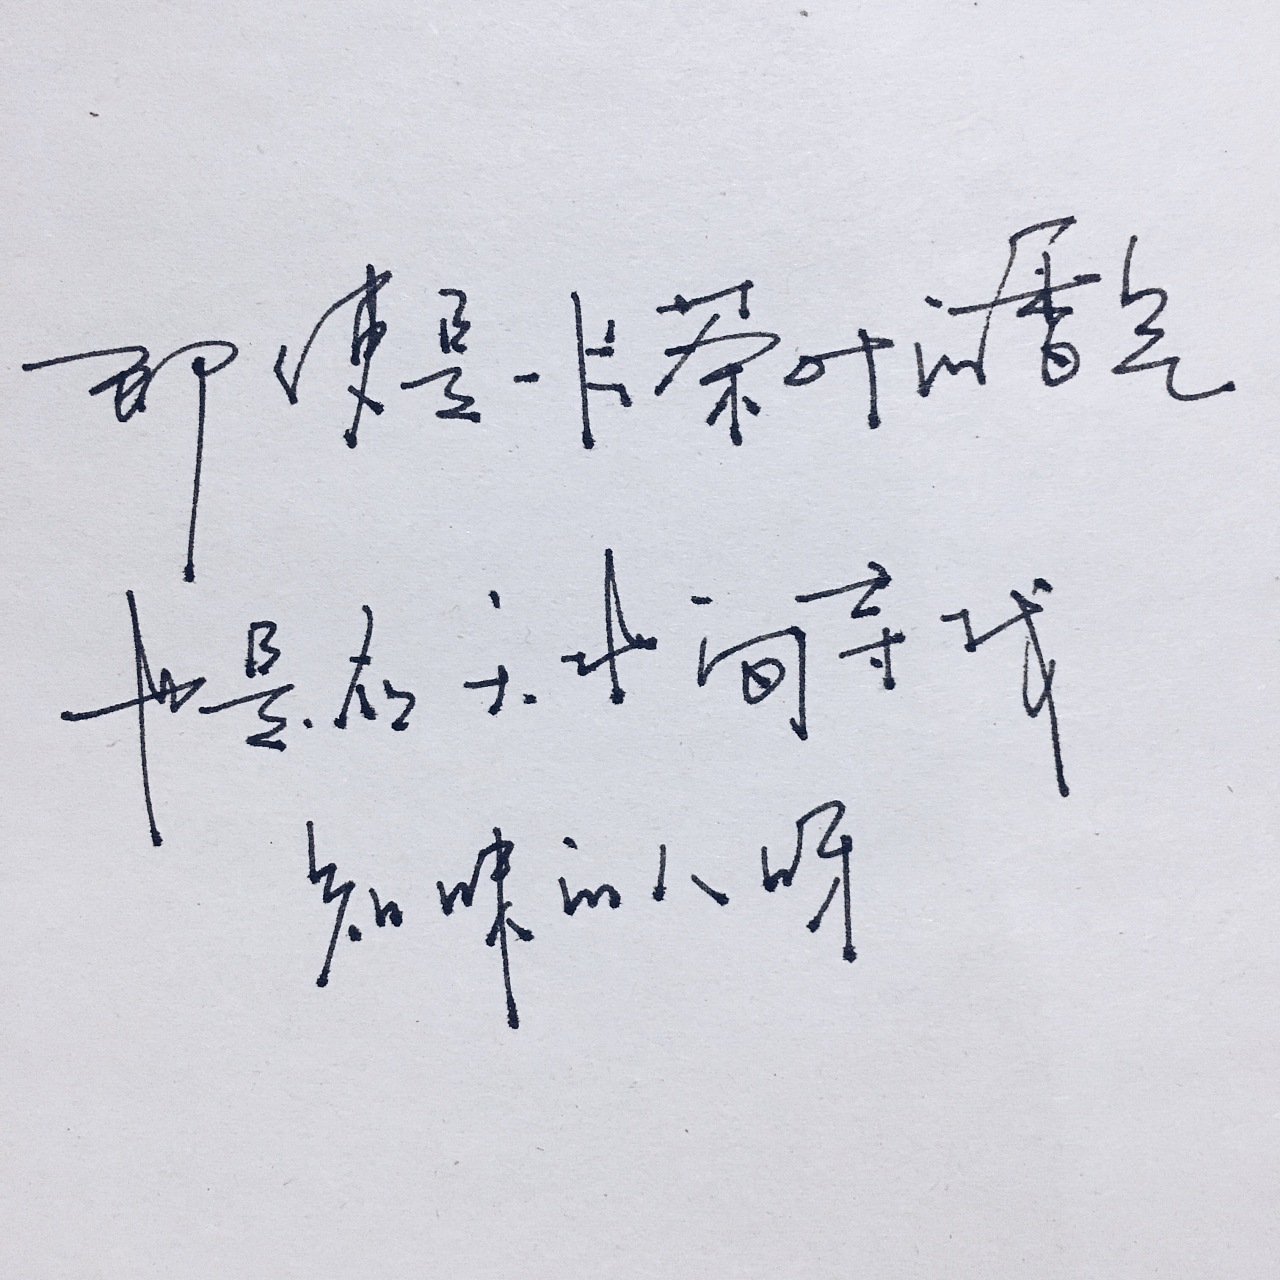 即便是一片茶叶的香气
也是在六廿间寻找
知味的人呀